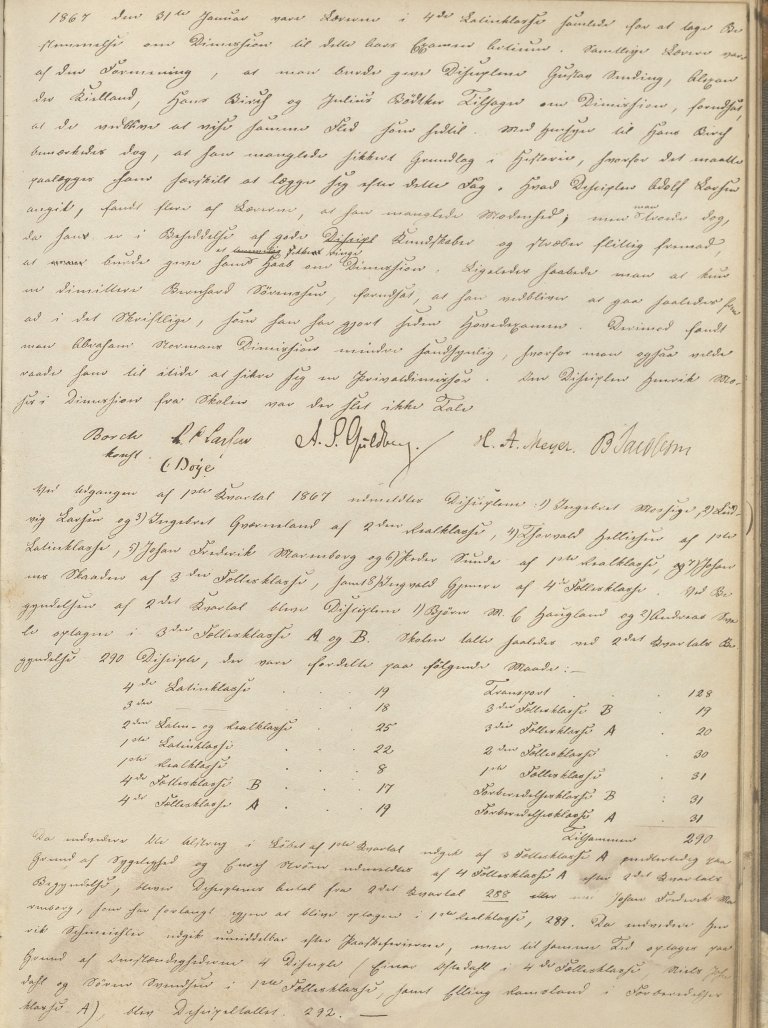 1867 den 31te Januar vare Lærerne i 4de Latinklasse samlede for at tage Be
stemmelse om Dimission til dette Aars Examen artium. Samtlige Lærere vare
af den Formening, at man burde give Disciplene Gustav Sending, Alexan
der Kielland, Hans Birch og Julius Bødtker Tilsagn om Dimission, forudsat,
at de vedblive at vise samme Flid som hidtil. Med Hensyn til Hans Birch
bemærkedes dog, at han manglede sikkert Grundlag i Historie, hvorfor det maatte
paalægges ham særskilt at lægge sig efter dette Fag. Hvad Disciplen Adolf Larsen
angik, fandt flere af Lærerne, at han manglede Modenhed; men man troede dog,
da han er i Besiddelse af gode Kundskaber og stræber flittig fremad,
at burde give ham Haab om Dimission. Ligeledes haabede man at kun
ne dimittere Bernhard Sörenssen, forudsat, at han vedbliver at gaa saaledes frem
ad i det Skriftlige, som han har gjort siden Hovedexamen. Derimod fandt
man Abraham Normans Dimission mindre sandsynlig, hvorfor man ogsaa vilde
raade ham til itide at sikre sig en Privatdimissor. Om Disciplen Henrik Mo-
Dimission fra Skolen var der slet ikke Tale
Borch Larsen A. S. Guldberg. H. A. Meyer. B Jacobsen
konst. C Döye
Ved Udgangen af 1ste Kvartal 1867 udmeldtes Disciplene: 1) Ingebret Mossige, 2) Lud-
vig Larsen og 3) Ingebret Gvarneland af 2den Realklasse, 4) Thorvald Hellisen af 1ste
Latinklasse, 5) Johan Frederik Marenborg og 6) Peder Sunde af 1ste Realklasse, 7) Johan
nes Skaaden af 3die Fællesklasse, samt 8) Ingvald Gjemre af 4de Fællesklasse. Ved Be
gyndelsen af 2det Kvartal bleve Disciplene 1) Björn M. C Haugland og 2) Andreas
optagne i 3die Fællesklasse A og B. Skolen talte saaledes ved 2det Kvartals Be
gyndelse 290 Disciple, der vare fordelte paa følgende Maade:—
4de Latinklasse . . . 19
3die — . . . 18
2den Latin- og Realklasse . . 25
1ste Latinklasse . . . 22
1ste Realklasse . . . 8
4de Fællesklasse B . . . 17
4de Fællesklasse A . . . 19
Transport . . . 128
3die Fællesklasse B . 19
3die Fællesklasse A . 20
2den Fællesklasse . 30
1ste Fællesklasse . 31
Forberedelsesklasse B : 31
Forberedelsesklasse A : 31
Tilsammen 290
Da i Løbet af 1ste Kvartal udgik af 3 Fællesklasse A paa
Grund af Sygelighed og Enoch udmeldtes af 4 Fællesklasse A efter 2det Kvartals
Begyndelse, bliver Disciplenes Antal fra 2det Kvartal 288 Johan Frederik Ma
renborg, som har forlangt igjen at blive optagen i 1ste Realklasse, 289. Da endvidere Hen
rik udgik umiddelbar efter Paaskeferierne, men til samme Tid optages paa
Grund af Omstændighederne 4 Disciple (Einar i 4de Fællesklasse, Niels
dahl og Sören Svendsen i 1ste Fællesklasse samt Elling Ramsland i Forberedelses
klasse A), blev Discipeltallet 292. —